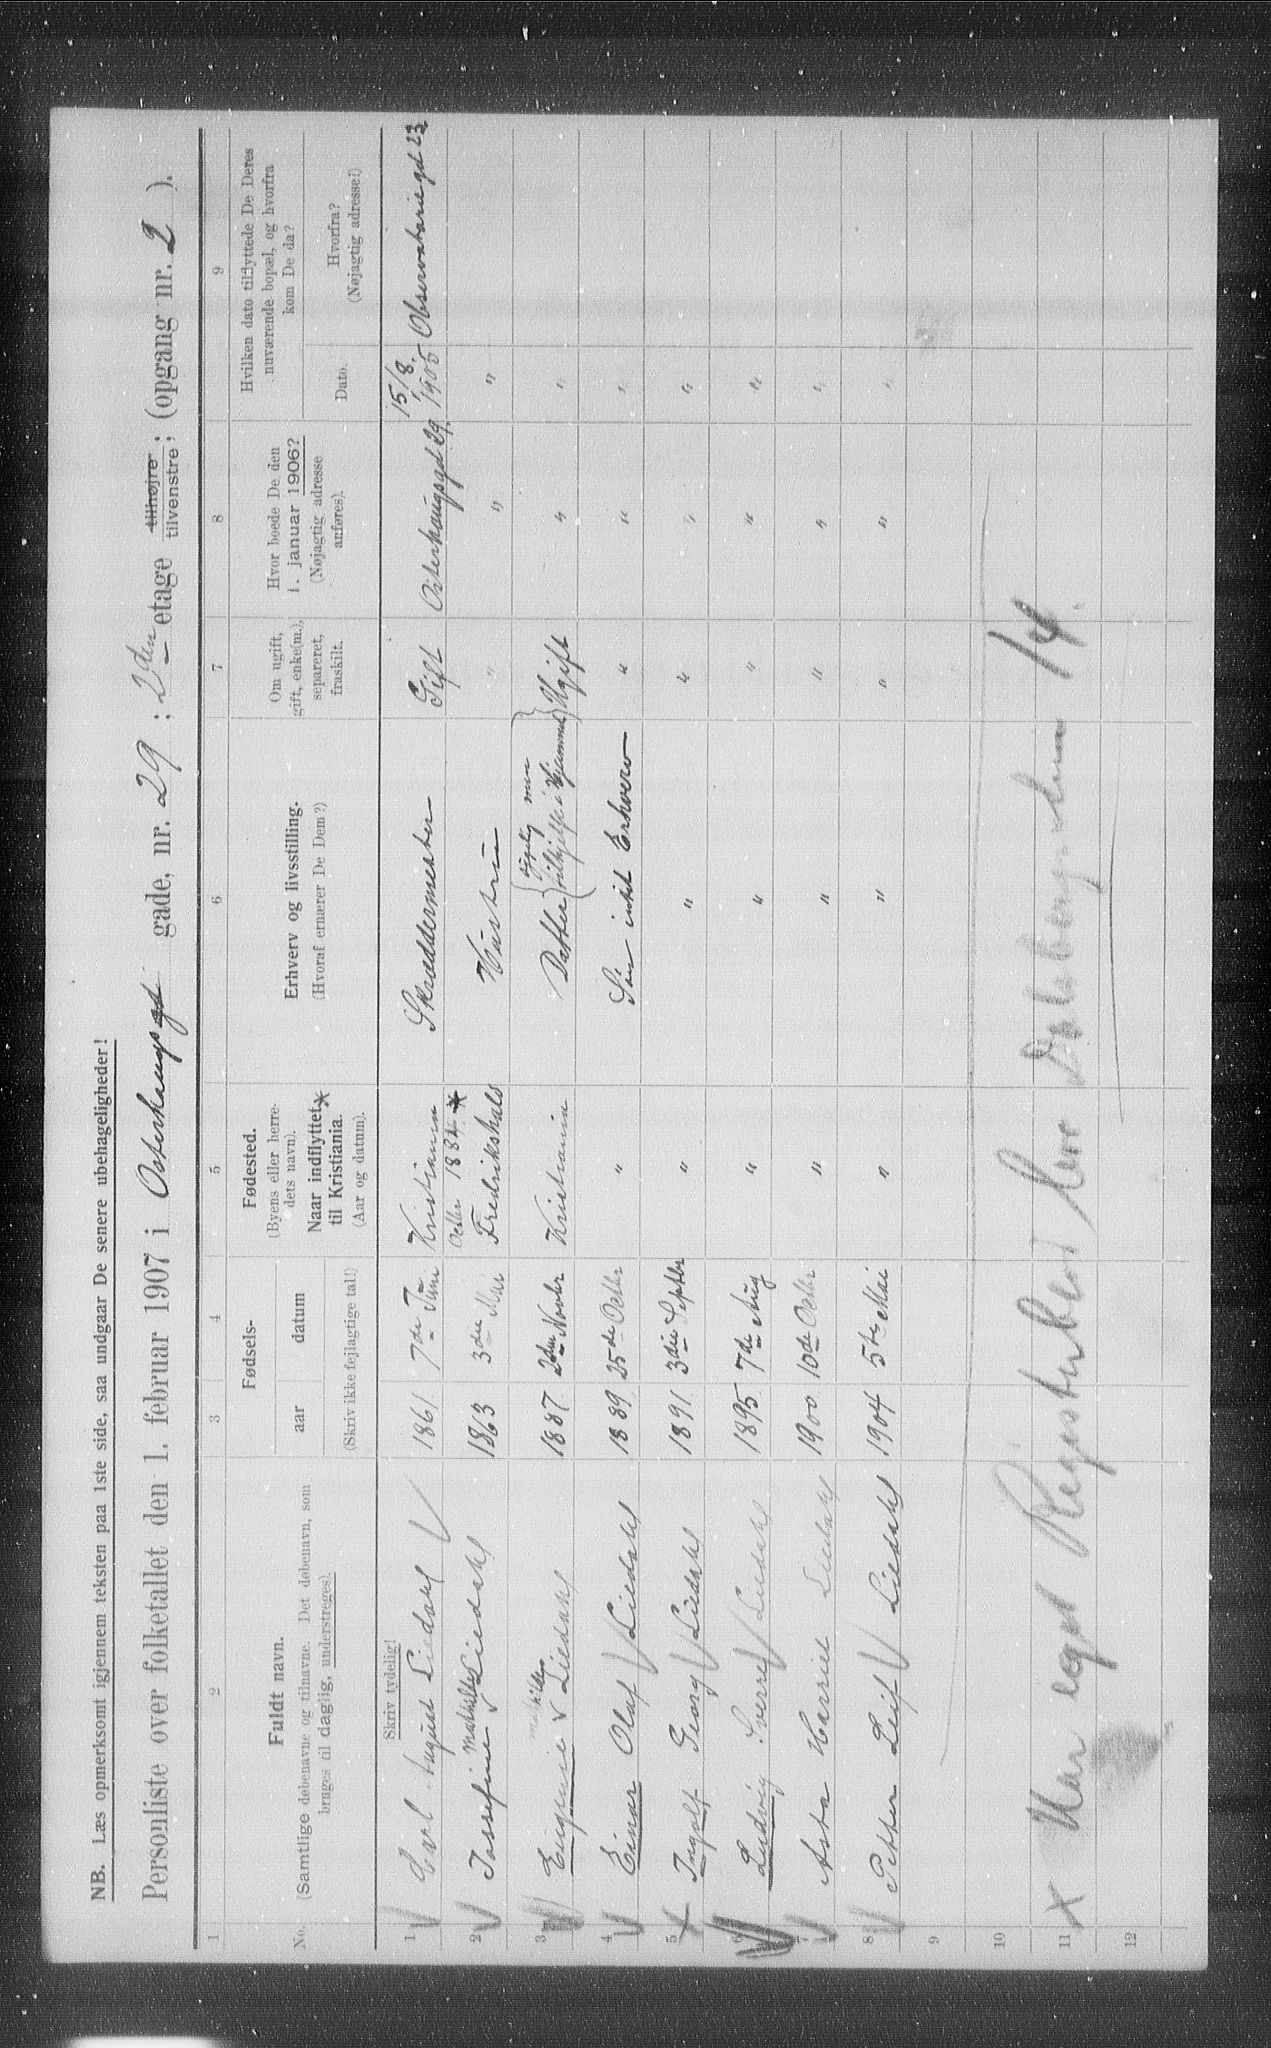 NB. Læs opmerksomt igjennem teksten paa 1ste side, saa undgaar De senere ubehageligheder!
Personliste over folketallet den 1. februar 1907 i Osterhaugsgd gade, nr. 29 ; 2den etage tilhøjre tilvenstre; (opgang nr. 2 ).
1 2 3 4 5 6 7 8 9
No.
Fuldt navn.
(Samtlige døbenavne og tilnavne. Det døbenavn, som
bruges til daglig, understreges).
Fødsels-
aar datum
(Skriv ikke fejlagtige tal!)
Fødested.
(Byens eller herre-
dets navn).
Naar indflyttet
til Kristiania.
(Aar og datum).
Erhverv og livsstilling.
(Hvoraf ernærer De Dem?)
Om ugift,
gift, enke(m.),
separeret,
fraskilt.
Hvor boede De den
1. januar 1906?
(Nøjagtig adresse
anføres).
Hvilken dato tilflyttede De Deres
nuværende bopæl, og hvorfra
kom De da?
Dato.
Hvorfra?
(Nøjagtig adresse!)
Skriv tydelig!
1 Carl August Liedahl 1861 7de Juni Kristiania Skræddermester Gift Osterhaugsgd 29. 15/8. 1905 Observatoriegd 23
Octbr 1884
2 Josefine Mathilde Liedahl 1863 3die Mai Fredrikshald Hustru " " "
3 Eugenie Liedahl 1887 2den Novbr Kristiania Datter tilhjelp i Hjemmet Ugift " "
4 Einar Olaf Liedahl 1889 25de Octbr " Søn intet Erhverv " " "
5 Ingolf Georg Liedahl 1891 3die Septbr " " " " "
6 Ludvig Sverre Liedahl 1895 7de Aug " " " " "
7 Asta Harriet Liedahl 1900 10de Octbr " " " " "
8 Petter Leif Liedahl 1904 5te Mai " " " " "
9
10
11 x Har eget Registerblad
12